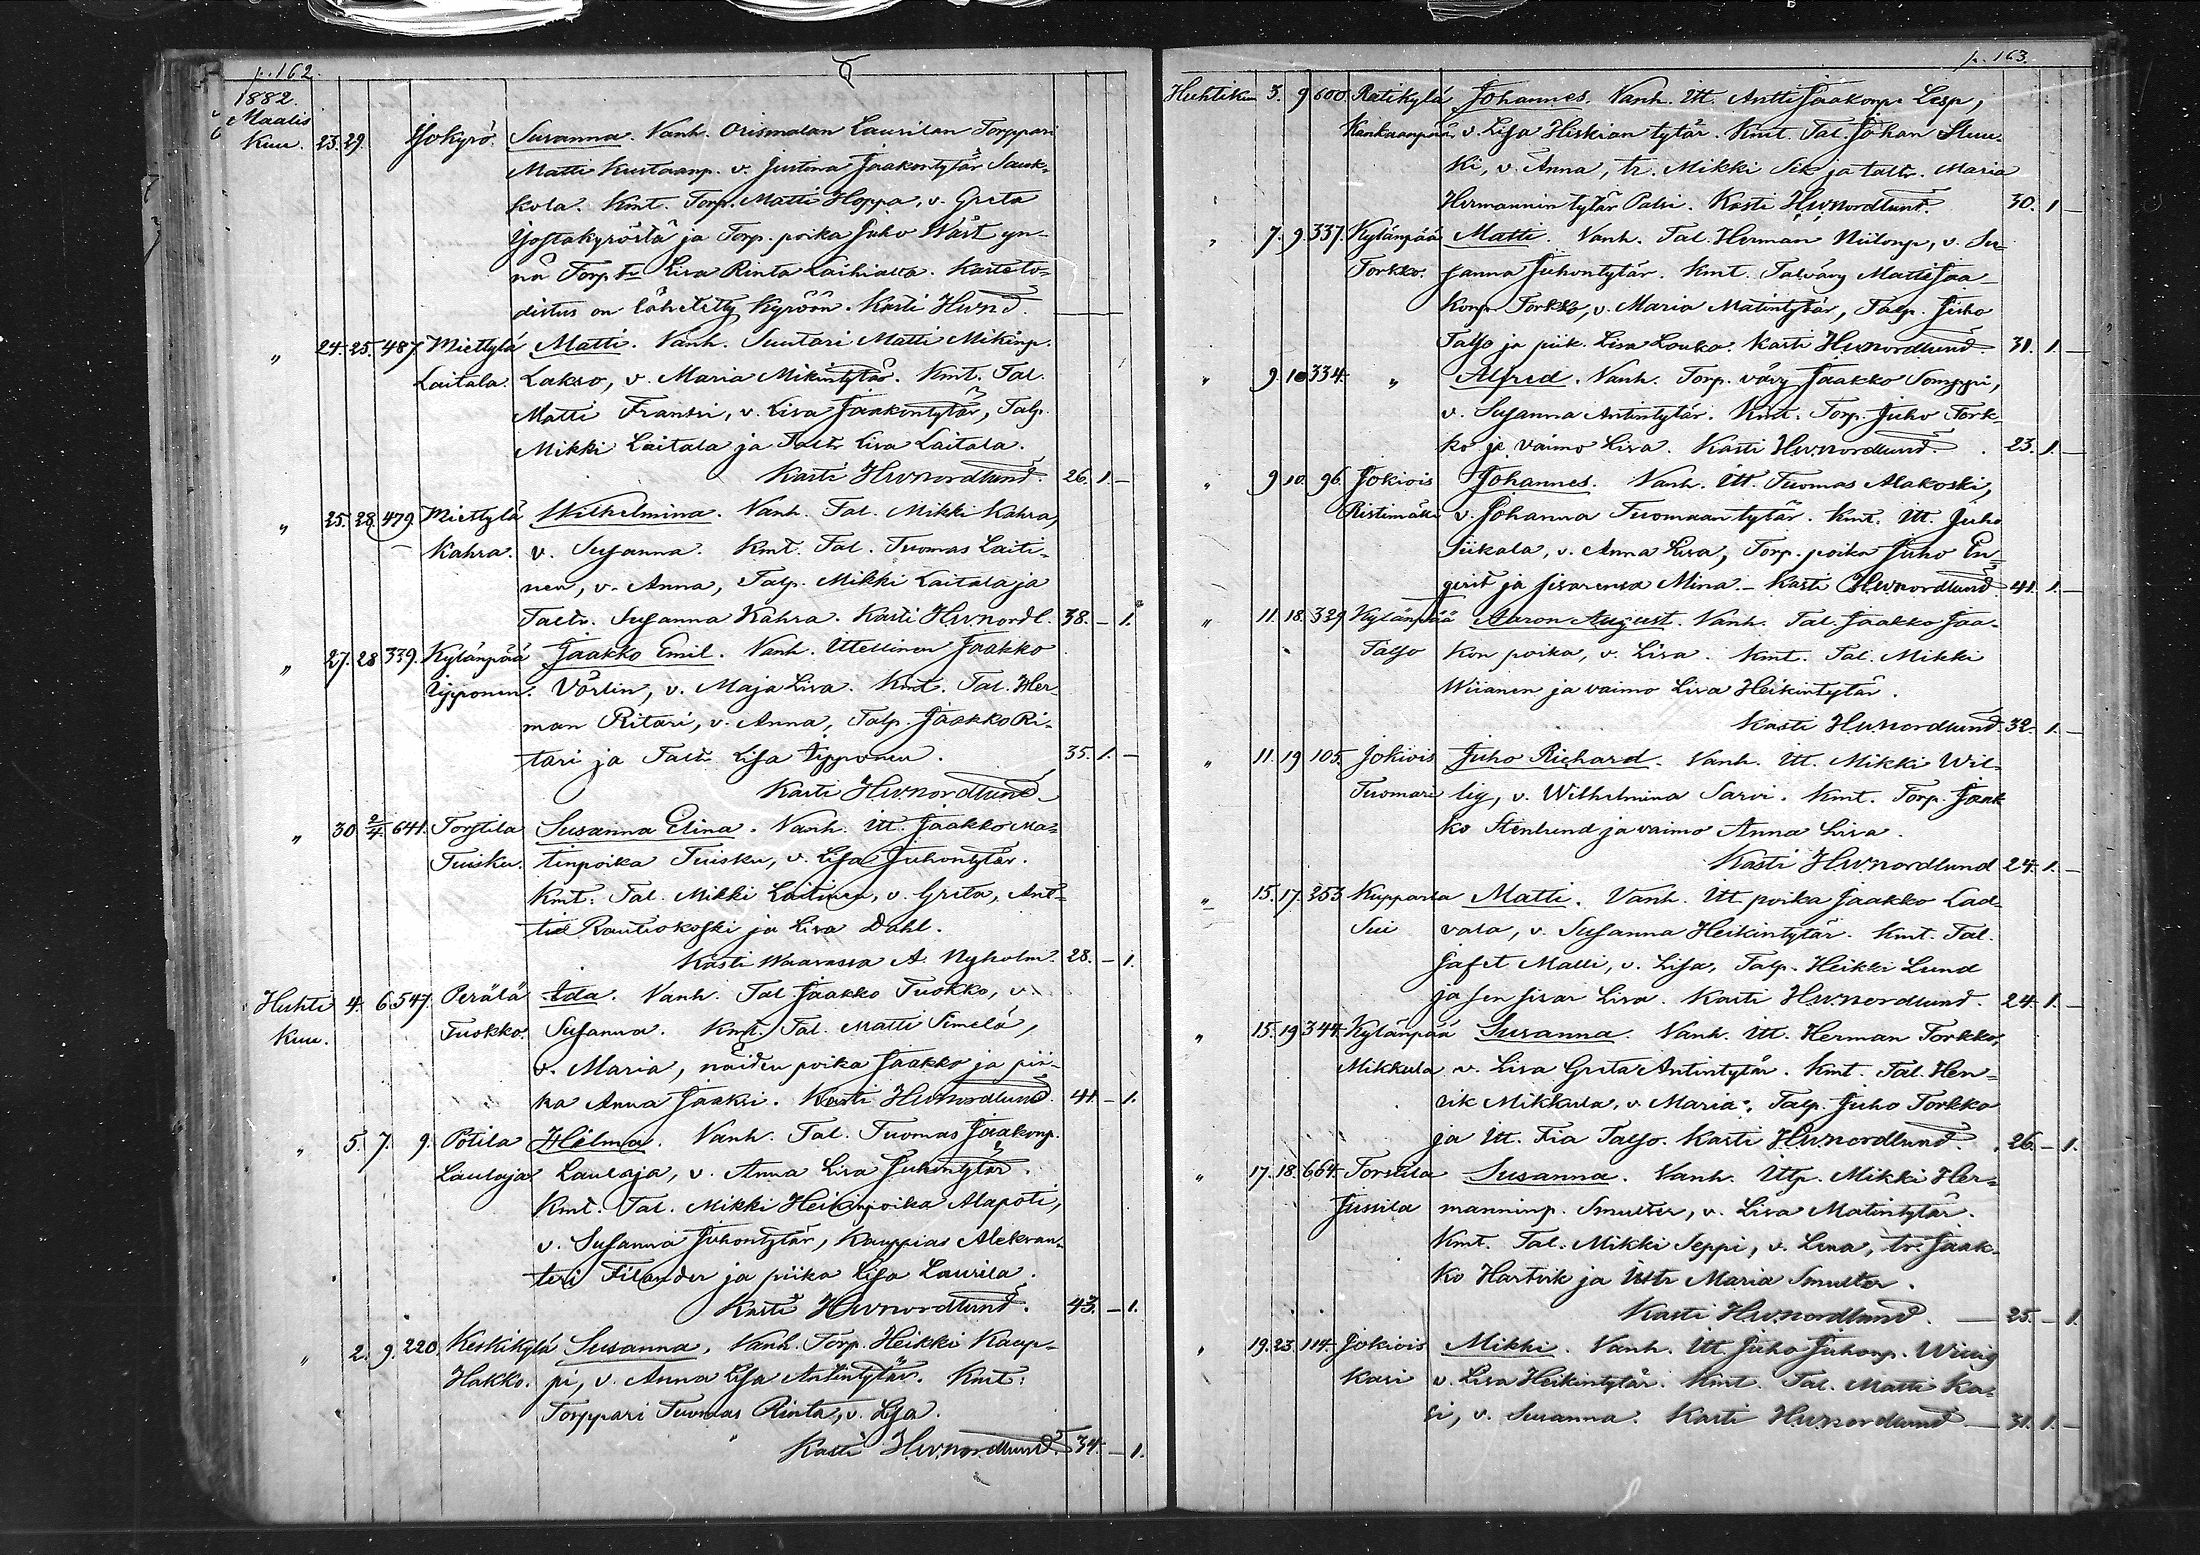 p. 162.
1882.
Maalis
Kuu. 23. 29. Isokyrö. Susanna. Vanh. Orismalan Laurilan Torppari
Matti Kustaanp. v. Justina Jaakontytär Sauk-
kola. Kmt. Torp. Matti Hoppa, v. Greta
Isostakyröstä ja Torp. poika Juho Wäst yn-
nä Torp. tr. Lisa Rinta Laihialta. Kasteto-
distus on lähetetty Kyröön. Kasti HWNd.
" 24. 25. 487. Miettylä Matti. Vanh. Suutari Matti Mikinp.
Laitala. Lakso, v. Maria Mikintytär. Kmt. Tal.
Matti Frantsi, v. Lisa Jaakontytär, Talp.
Mikki Laitala ja Taltr. Lisa Laitala.
Kasti HWNordlund. 26. 1. –
" 25. 28. 479. Miettylä Wilhelmina. Vanh. Tal. Mikki Kahra,
Kahra. v. Susanna. Kmt. Tal. Tuomas Laiti-
nen, v. Anna, Talp. Mikki Laitala ja
Taltr. Susanna Kahra. Kasti HWNordl. 38. – 1.
" 27. 28. 339. Kylänpää Jaakko Emil. Vanh. Itsellinen Jaakko
Vipponen. Vörlin, v. Maja Lisa. Kmt. Tal. Her-
man Ritari, v. Anna, Talp. Jaakko Ri-
tari ja Taltr. Lisa Vipponen. 35. 1. –
Kasti HWNordlund
" 30. 2/4. 641. Torstila Susanna Elina. Vanh. Itt. Jaakko Ma-
Tuisku. tinpoika Tuisku, v. Lisa Juhontytär.
Kmt. Tal. Mikki Laitinen, v. Greta, Ant-
ti Rautiokoski ja Lisa Dahl.
Kasti Waarassa A. Nyholm. 28. – 1.
Huhti 4. 6. 547. Perälä Ida. Vanh. Tal. Jaakko Tuokko, v.
Kuu. Tuokko. Susanna. Kmt. Tal. Matti Simelä,
v. Maria, näiden poika Jaakko ja pii-
ka Anna Jaaksi. Kasti HWNordlund. 41. – 1.
" 5. 7. 9. Potila Hilma. Vanh. Tal. Tuomas Jaakonp.
Laulaja Laulaja, v. Anna Lisa Juhontytär.
Kmt. Tal. Mikki Heikinpoika Alapoti,
v. Susanna Juhontytär, Kauppias Aleksan-
teri Filander ja piika Lisa Laurila.
Kasti HWNordlund. 43. – 1.
" 2. 9. 220. Keskikylä Susanna. Vanh. Torp. Heikki Kaup-
Hakko. pi, v. Anna Lisa Antintytär. Kmt.
Torppari Tuomas Rinta, v. Lisa.
Kasti HWNordlund. 34. – 1.
p. 163.
Huhtikuu 3. 9. 600. Ratikylä Johannes. Vanh. Itt. Antti Jaakonp. Lesp,
Kankaanpää v. Lisa Hiskian tytär. Kmt. Tal. Johan Stuu-
ki, v. Anna, tr. Mikki Sik ja taltr. Maria
Hermannin tytär Palvi. Kasti HWNordlund. 30. 1 –
" 7. 9. 337. Kylänpää Matti. Vanh. Tal. Herman Niilonp., v. Su-
Torkko. sanna Juhontytär. Kmt. Talvävy Matti Jaa-
konp. Torkko, v. Maria Matintytär, Talp. Juho
Talso ja piik. Lisa Louko. Kasti HWNordlund. 31. 1. –
" 9. 10. 334. " Alfred. Vanh. Torp. vävy Jaakko Somppi,
v. Susanna Antintytär. Kmt. Torp. Juho Tork-
ko ja vaimo Lisa. Kasti HWNordlund. 23. 1. –
" 9. 10. 96. Jokiois Johannes. Vanh. Itt. Tuomas Alakoski,
Ristimäki v. Johanna Tuomaan tytär. Kmt. Itt. Juho
Siikala, v. Anna Lisa, Torp. poika Juho En-
gerit ja sisarensa Mina. – Kasti HWNordlund 41. 1. –
" 11. 18. 329. Kylänpää Aaron August. Vanh. Tal. Jaakko Jaa-
Talso kon poika, v. Lisa. Kmt. Tal. Mikki
Wiianen ja vaimo Lisa Heikintytär.
Kasti HWNordlund. 32. 1. –
" 11. 19. 105. Jokiois Juho Richard. Vanh. Itt. Mikki Wil-
Tuomari lig, v. Wilhelmina Sarvi. Kmt. Torp. Jaak
ko Stenlund ja vaimo Anna Lisa.
Kasti HWNordlund 24. 1. –
" 15. 17. 253. Kupparla Matti. Vanh. Itt. poika Jaakko Lad-
Sui vala, v. Susanna Heikintytär. Kmt. Tal.
Jafet Malli, v. Lisa, Talp. Heikki Lund
ja sen sisar Lisa. Kasti HWNordlund. 24. 1. –
" 15. 19. 344. Kylänpää Susanna. Vanh. Itt. Herman Torkko,
Mikkula v. Lisa Greta Antintytär. Kmt. Tal. Hen-
rik Mikkula, v. Maria, Talp. Juho Torkko
ja Itt. Fia Talso. Kasti HWNordlund. 26. – 1.
" 17. 18. 664. Torstila Susanna. Vanh. Ittp. Mikki Her-
Jussila manninp. Smulter, v. Lisa Matintytär.
Kmt. Tal. Mikki Seppi, v. Lena, tr. Jaak-
ko Hartvik ja Ittr Maria Smulter.
Kasti HWNordlund. – 25. – 1.
" 19. 23. 114. Jokiois Mikki. Vanh. Itt. Juho Juhonp. Willig
Kasi v. Lisa Heikintytär. Kmt. Tal. Matti Ka-
si, v. Susanna. Kasti HWNordlund – 31. 1. –